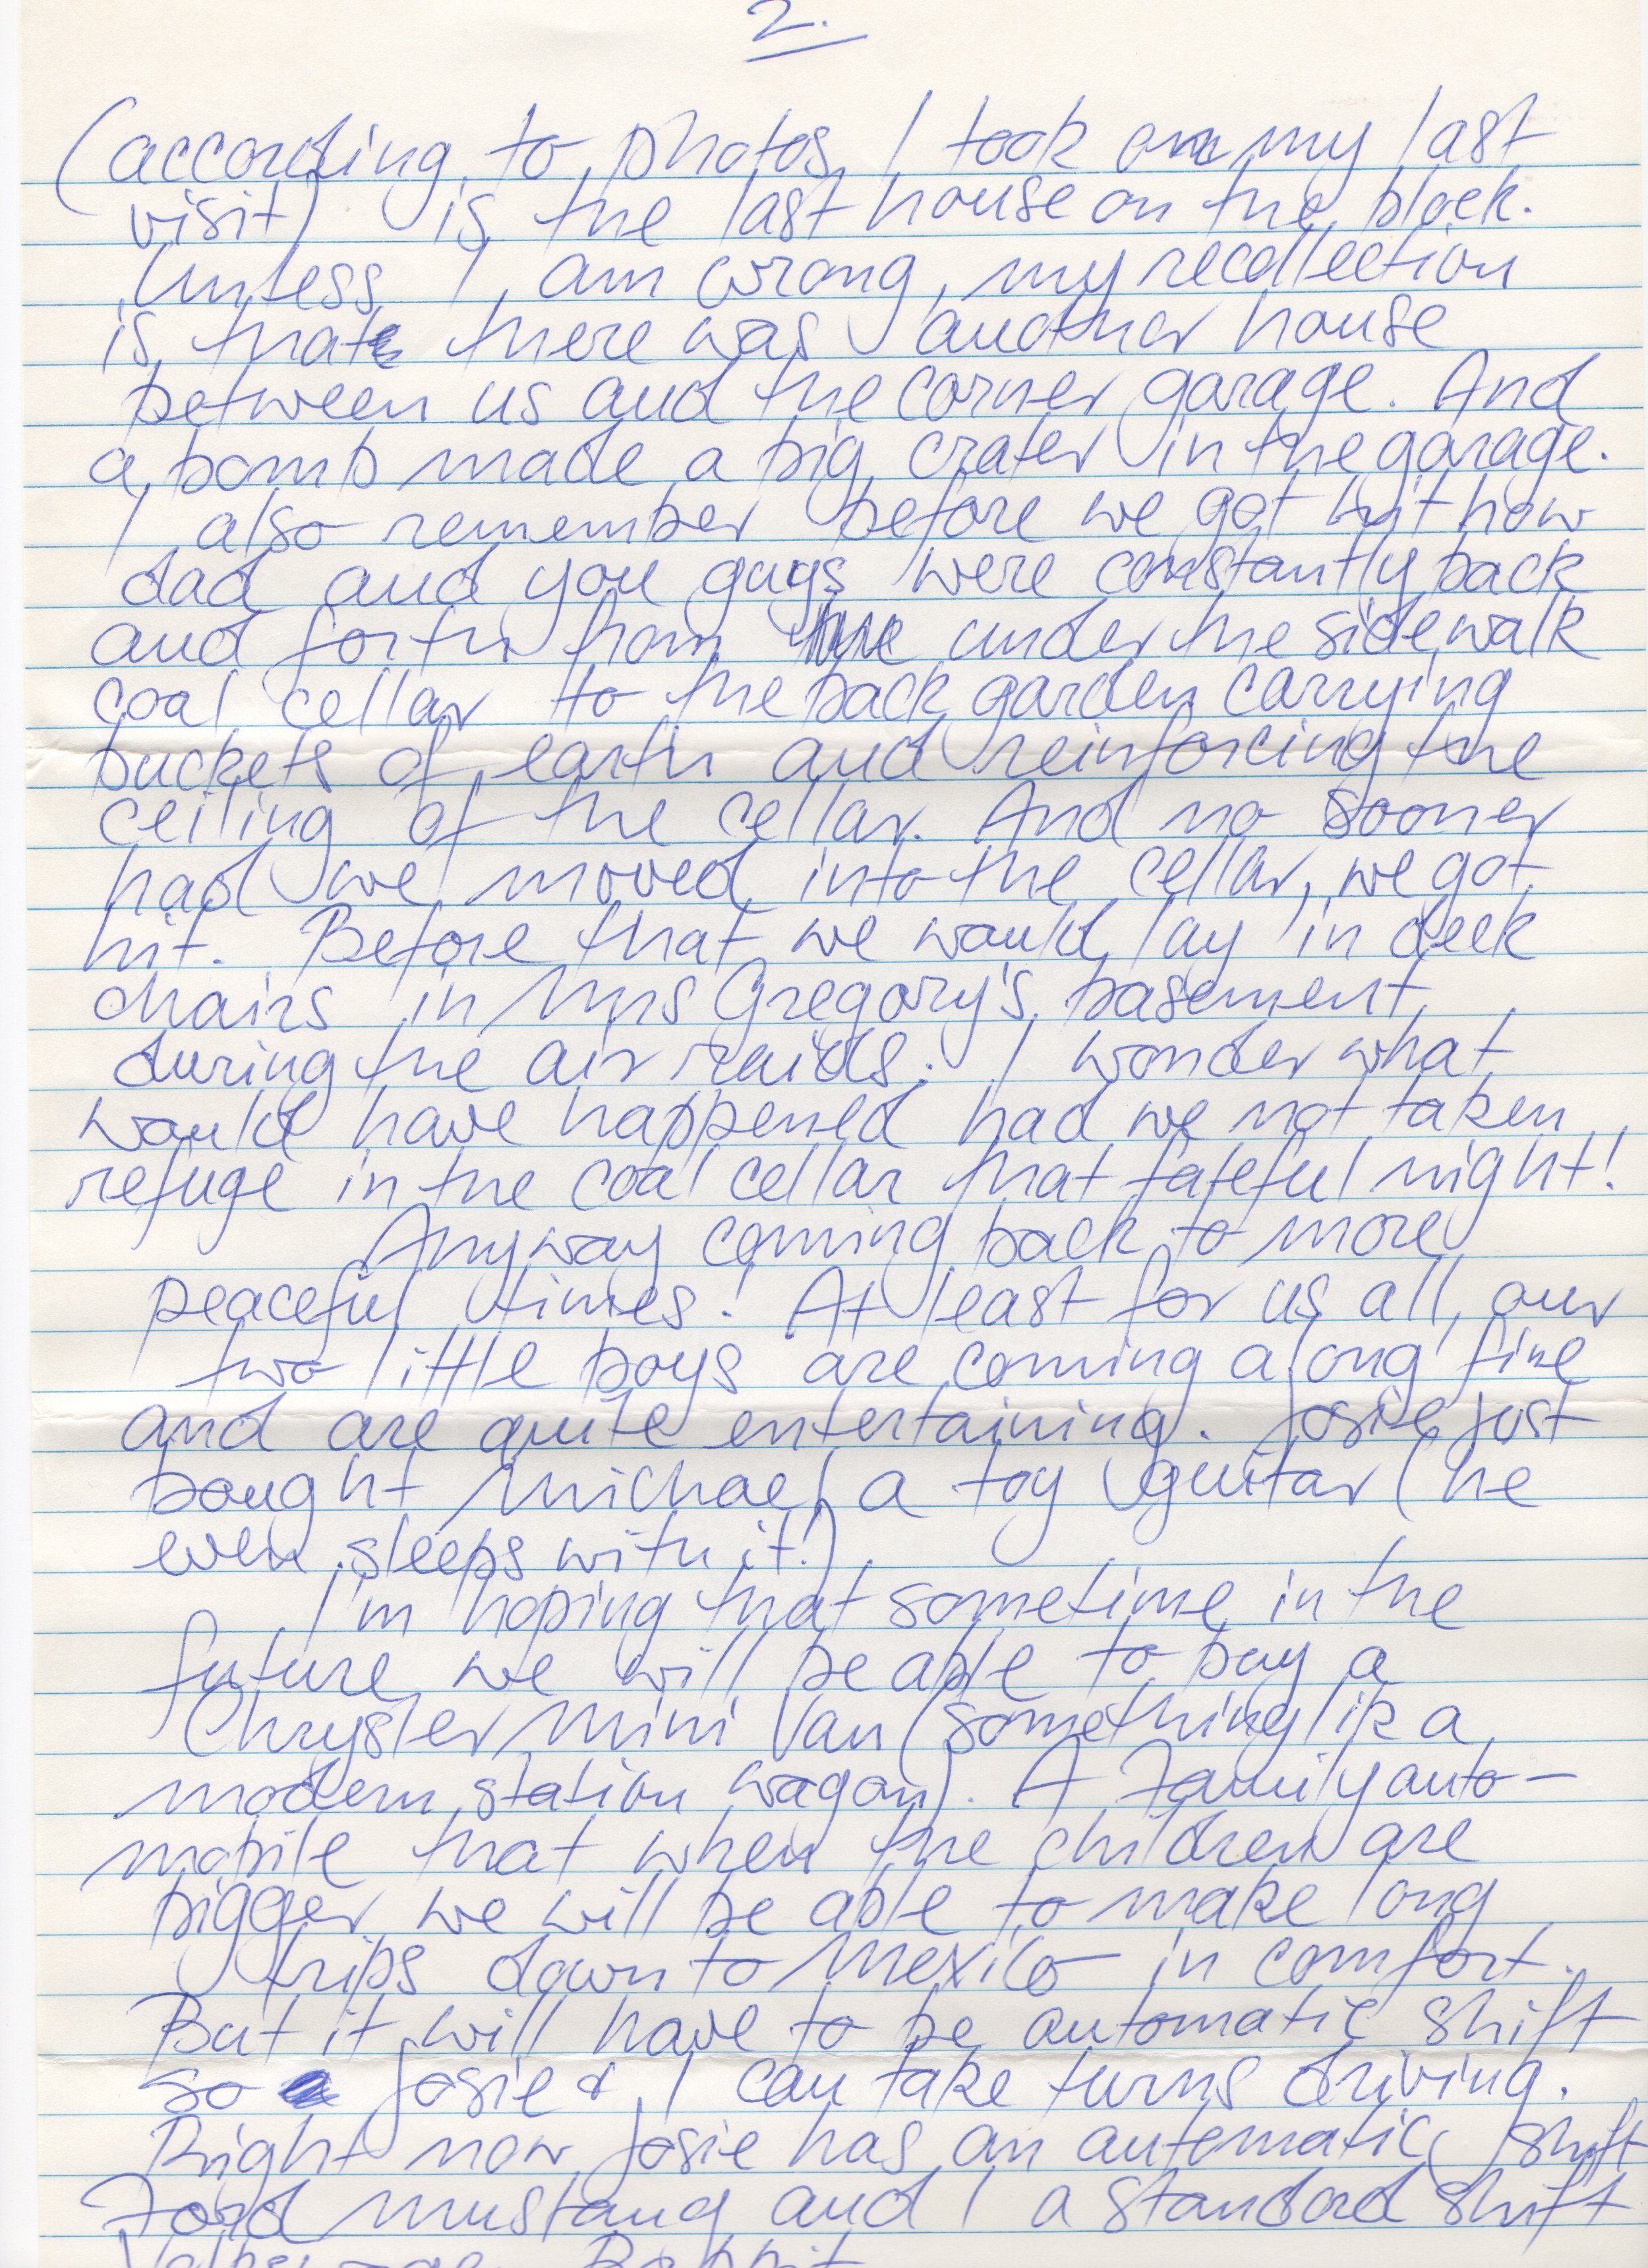 2.
(according to photos I took on my last
visit) is the last house on the block.
Unless I am wrong, my recollection
is that there was another house
between us and the corner garage. And
a bomb made a big crater in the garage.
I also remember before we got hit how
dad and you guys were constantly back
and forth from the under the sidewalk
coal cellar to the back garden carrying
buckets of earth and reinforcing the
ceiling of the cellar. And no sooner
had we moved into the cellar, we got
hit. Before that we would lay in deck
chairs in Mrs Gregory's basement
during the air raids. I wonder what
would have happened had we not taken
refuge in the coal cellar that fateful night!
Anyway coming back to more
peaceful times! At least for us all, our
two little boys are coming along fine
and are quite entertaining. Josie just
bought Michael a toy guitar (he
even sleeps with it!)
I'm hoping that sometime in the
future we will be able to buy a
Chrysler Mini Van (something lik a
modern station wagon). A Family auto-
mobile that when the children are
bigger we will be able to make long
trips down to Mexico in comfort.
But it will have to be automatic shift
so Josie & I can take turns driving.
Right now Josie has an automatic shift
Ford mustang and I a standard shift
Rabbit